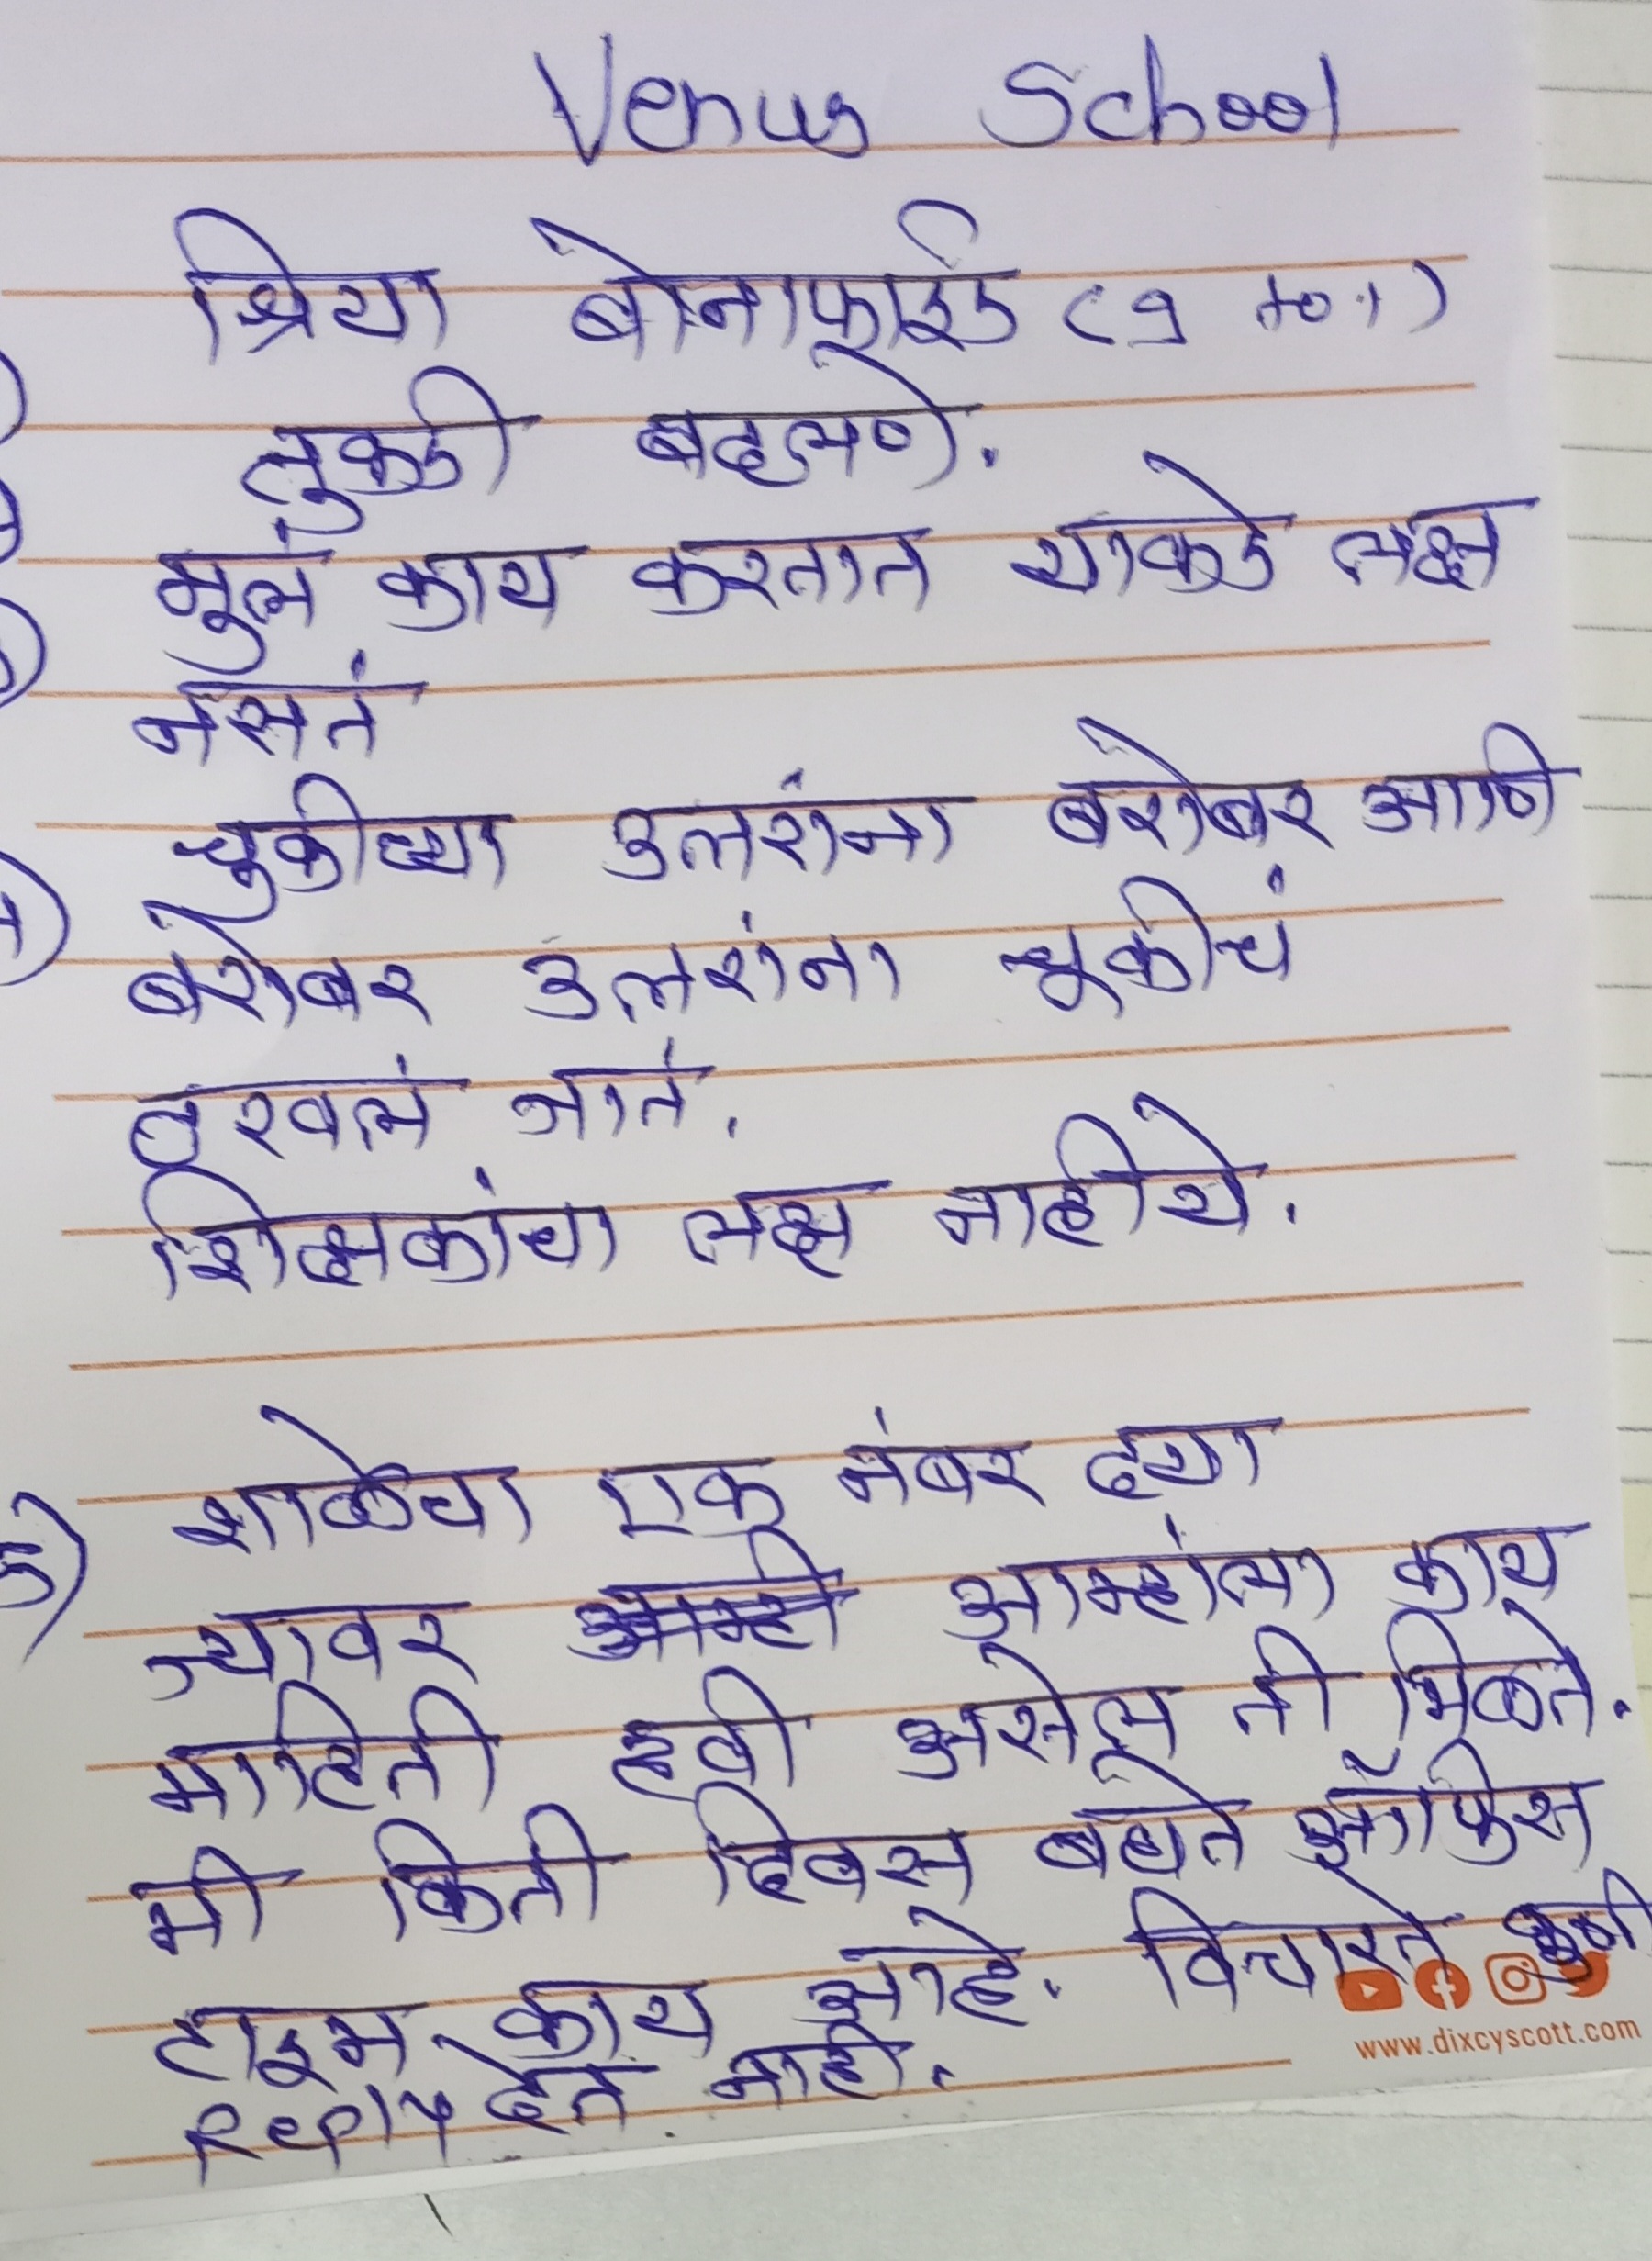 Venus School
श्रिया बोनाफाईड (9 to 1)
तुकडी बदलणे.
मुलं काय करतात याकडे लक्ष
नसतं
4) चुकीच्या उत्तरांना बरोबर आणि
बरोबर उत्तरांना चूकीचं
ठरवलं जातं.
शिक्षकांचा लक्ष नाहीये.
5) शाळेचा एक नंबर दया
ज्यावर आम्ही आम्हांला काय
माहिती हवी असेल ती मिळते.
मी किती दिवस बघते ऑफिस
टाइम काय आहे. विचारते कुणी
Reply देत नाही.
www.dixcyscott.com